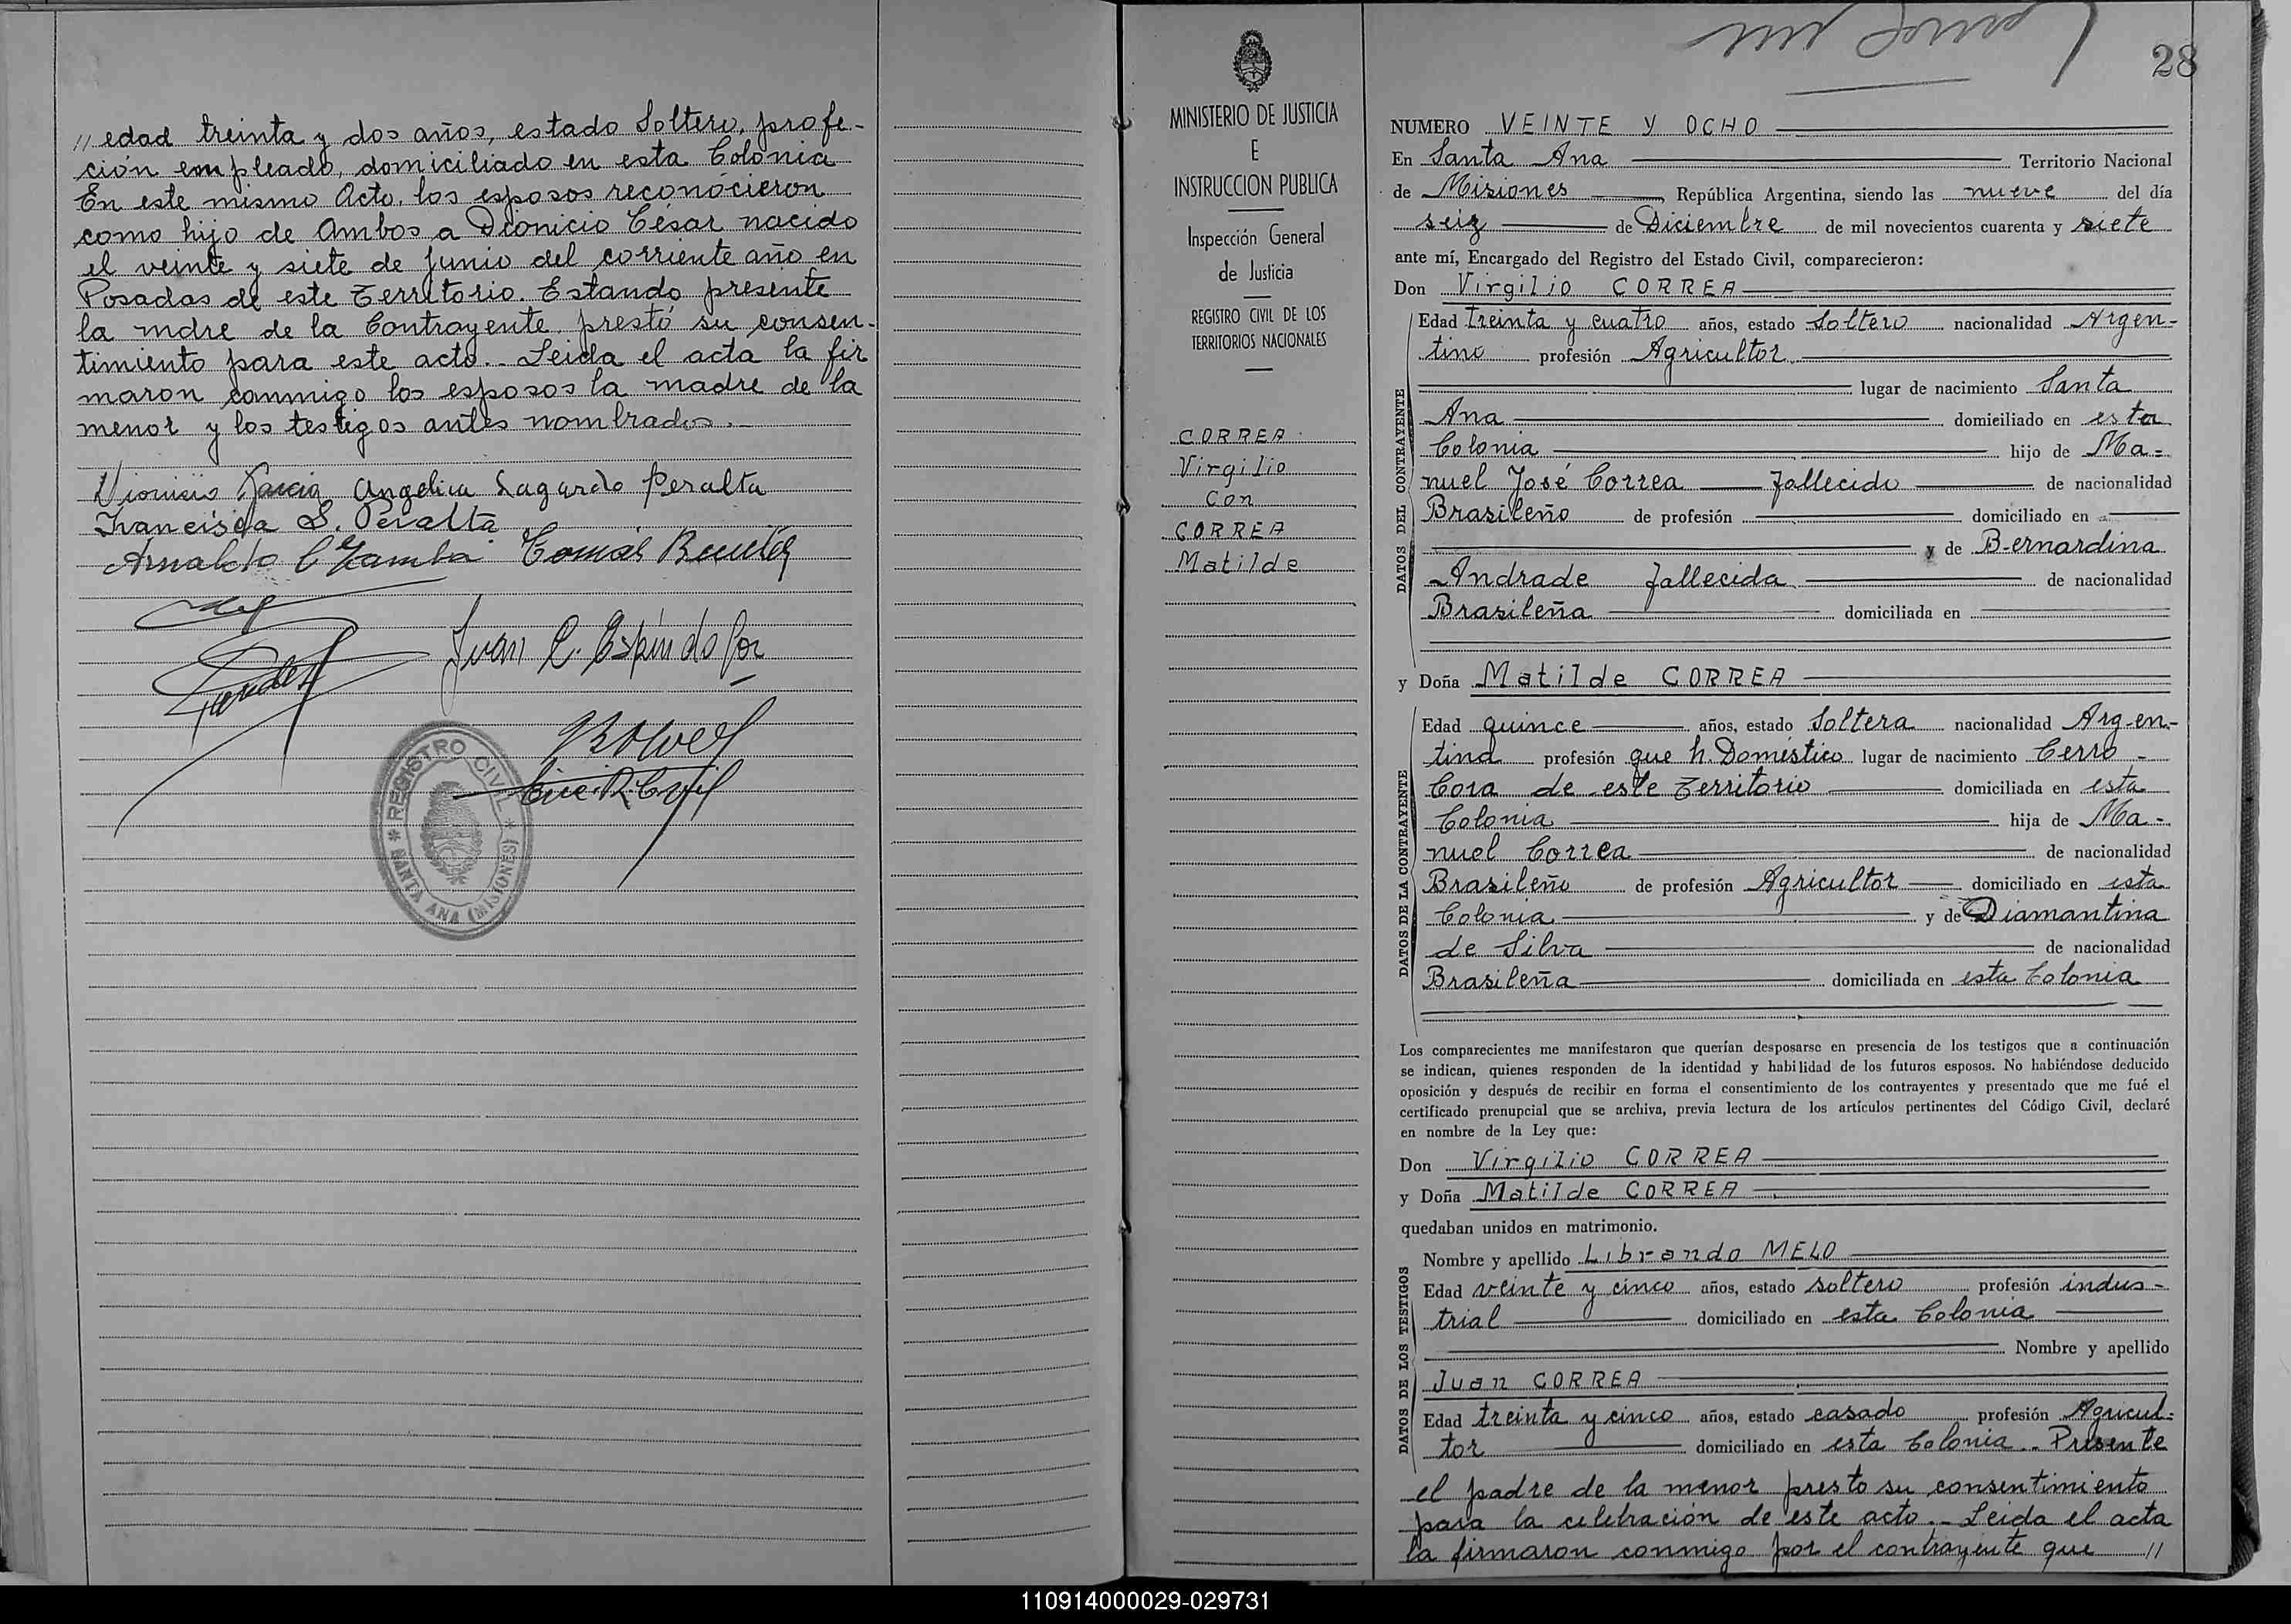 // edad treinta y dos años, estado Soltero, profe-
ción empleado, domiciliado en esta Colonia
En este mismo Acto, los esposos reconocieron
como hijo de Ambos a Dionicio César nacido
el veinte y siete de Junio del corriente año en
Posadas de este Territorio. Estando presente
la mdre de la Contrayente, prestó su consen-
timiento para este acto.- Leida el acta la fir
maron conmigo los esposos la madre de la
menor y los testigos antes nombrados.-
Dionisio Garcia Angelica Lagardo Peralta
Francisca L. Peralta
Arnaldo C Gamba Tomás Benitez
Juan C. Espíndola
REGISTRO CIVIL
SANTA ANA (MISIONES)
MINISTERIO DE JUSTICIA
E
INSTRUCCION PUBLICA
Inspección General
de Justicia
REGISTRO CIVIL DE LOS
TERRITORIOS NACIONALES
CORREA
Virgilio
Con
CORREA
Matilde
28
NUMERO VEINTE Y OCHO
En Santa Ana Territorio Nacional
de Misiones, República Argentina, siendo las nueve del día
seiz de Diciembre de mil novecientos cuarenta y siete
ante mí, Encargado del Registro del Estado Civil, comparecieron:
Don Virgilio CORREA
DATOS DEL CONTRAYENTE
Edad treinta y cuatro años, estado Soltero nacionalidad Argen-
tino profesión Agricultor
lugar de nacimiento Santa
Ana domiciliado en esta
Colonia hijo de Ma=
nuel José Correa Fallecido de nacionalidad
Brasileño de profesión domiciliado en
y de Bernardina
Andrade Fallecida de nacionalidad
Brasileña domiciliada en
y Doña Matilde CORREA
DATOS DE LA CONTRAYENTE
Edad quince años, estado Soltera nacionalidad Argen-
tina profesión que h. Doméstico lugar de nacimiento Cerro-
Cora de este Territorio domiciliada en esta
Colonia hija de Ma-
nuel Correa de nacionalidad
Brasileño de profesión Agricultor domiciliado en esta
Colonia y de Diamantina
de Silva de nacionalidad
Brasileña domiciliada en esta Colonia
Los comparecientes me manifestaron que querían desposarse en presencia de los testigos que a continuación
se indican, quienes responden de la identidad y habilidad de los futuros esposos. No habiéndose deducido
oposición y después de recibir en forma el consentimiento de los contrayentes y presentado que me fué el
certificado prenupcial que se archiva, previa lectura de los artículos pertinentes del Código Civil, declaré
en nombre de la Ley que:
Don Virgilio CORREA
y Doña Matilde CORREA
quedaban unidos en matrimonio.
DATOS DE LOS TESTIGOS
Nombre y apellido Librando MELO
Edad veinte y cinco años, estado soltero profesión indus-
trial domiciliado en esta Colonia
Nombre y apellido
Juan CORREA
Edad treinta y cinco años, estado casado profesión Agricul=
tor domiciliado en esta Colonia.. Presente
el padre de la menor presto su consentimiento
para la celebración de este acto.- Leida el acta
la firmaron conmigo por el contrayente que //
110914000029-029731